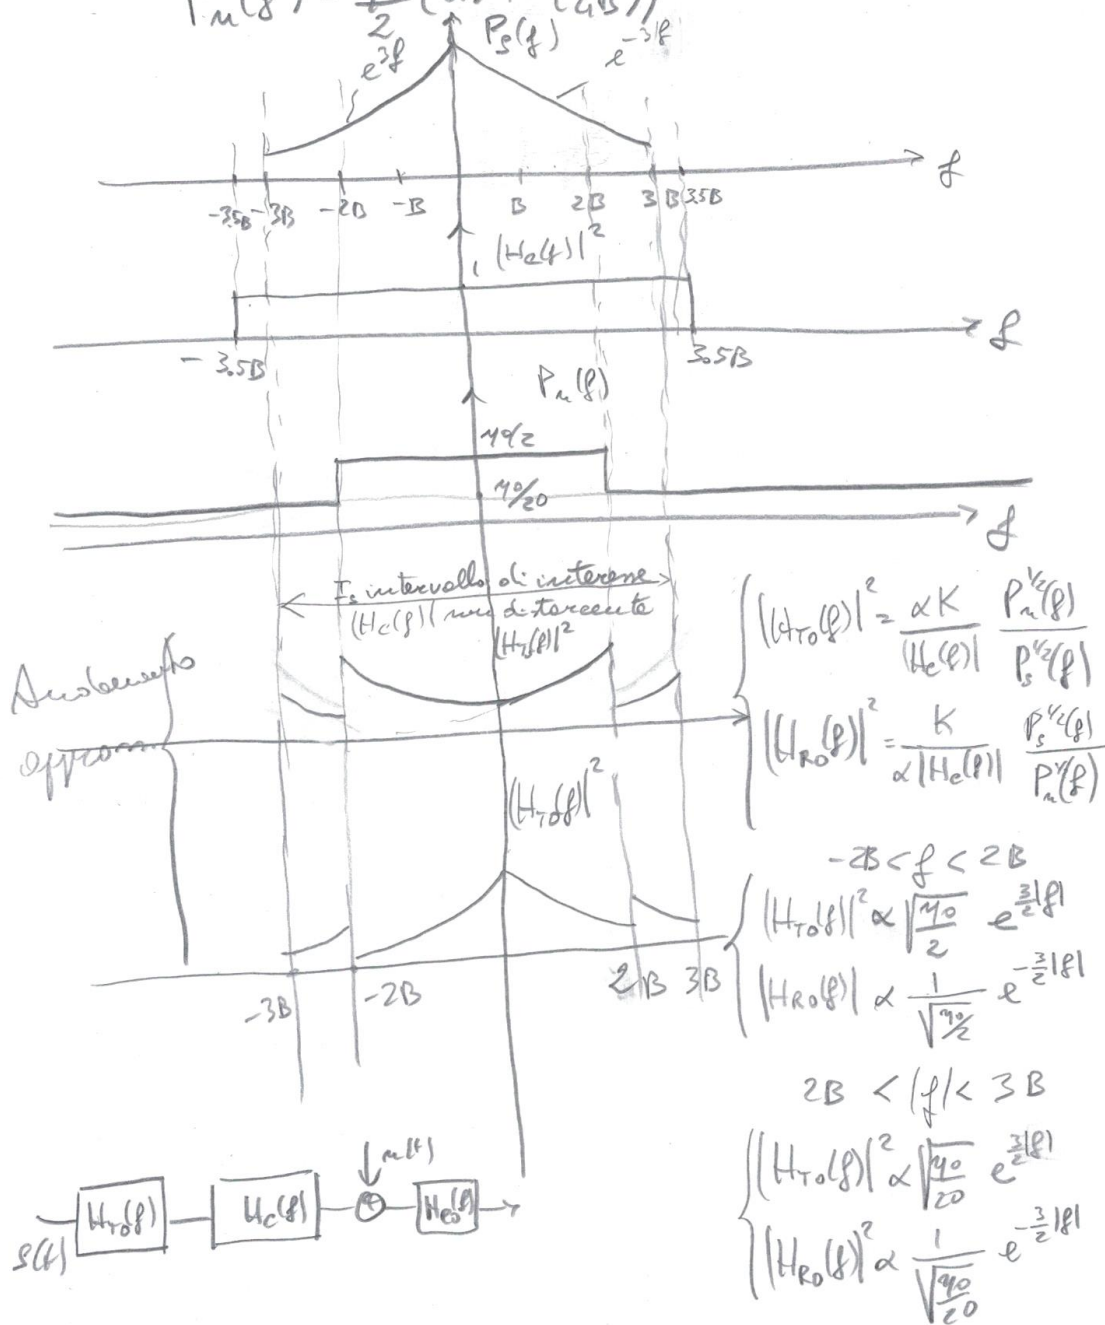 P_n(f)
2
P_s(f)
e^{3f}
e^{-3f}
-3.5B -3B -2B -B B 2B 3B 3.5B
f
1 |H_c(f)|^2
f
-3.5B 3.5B
P_n(f)
η0/2
η0/20
f
I_s intervallo di interesse
|H_c(f)| non distorcente
|H_T(f)|^2
Andamento
appross
|H_{T0}(f)|^2 = αK/|H_c(f)| P_n^{1/2}(f)/P_s^{1/2}(f)
|H_{R0}(f)|^2 = K/α|H_c(f)| P_s^{1/2}(f)/P_n^{1/2}(f)
|H_{T0}(f)|^2
-2B < f < 2B
|H_{T0}(f)|^2 α √(η0/2) e^{3/2|f|}
|H_{R0}(f)| α 1/√(η0/2) e^{-3/2|f|}
-3B -2B 2B 3B
2B < |f| < 3B
|H_{T0}(f)|^2 α √(η0/20) e^{3/2|f|}
|H_{R0}(f)|^2 α 1/√(η0/20) e^{-3/2|f|}
n(t)
S(t) H_{T0}(f) H_c(f) + H_{R0}(f)